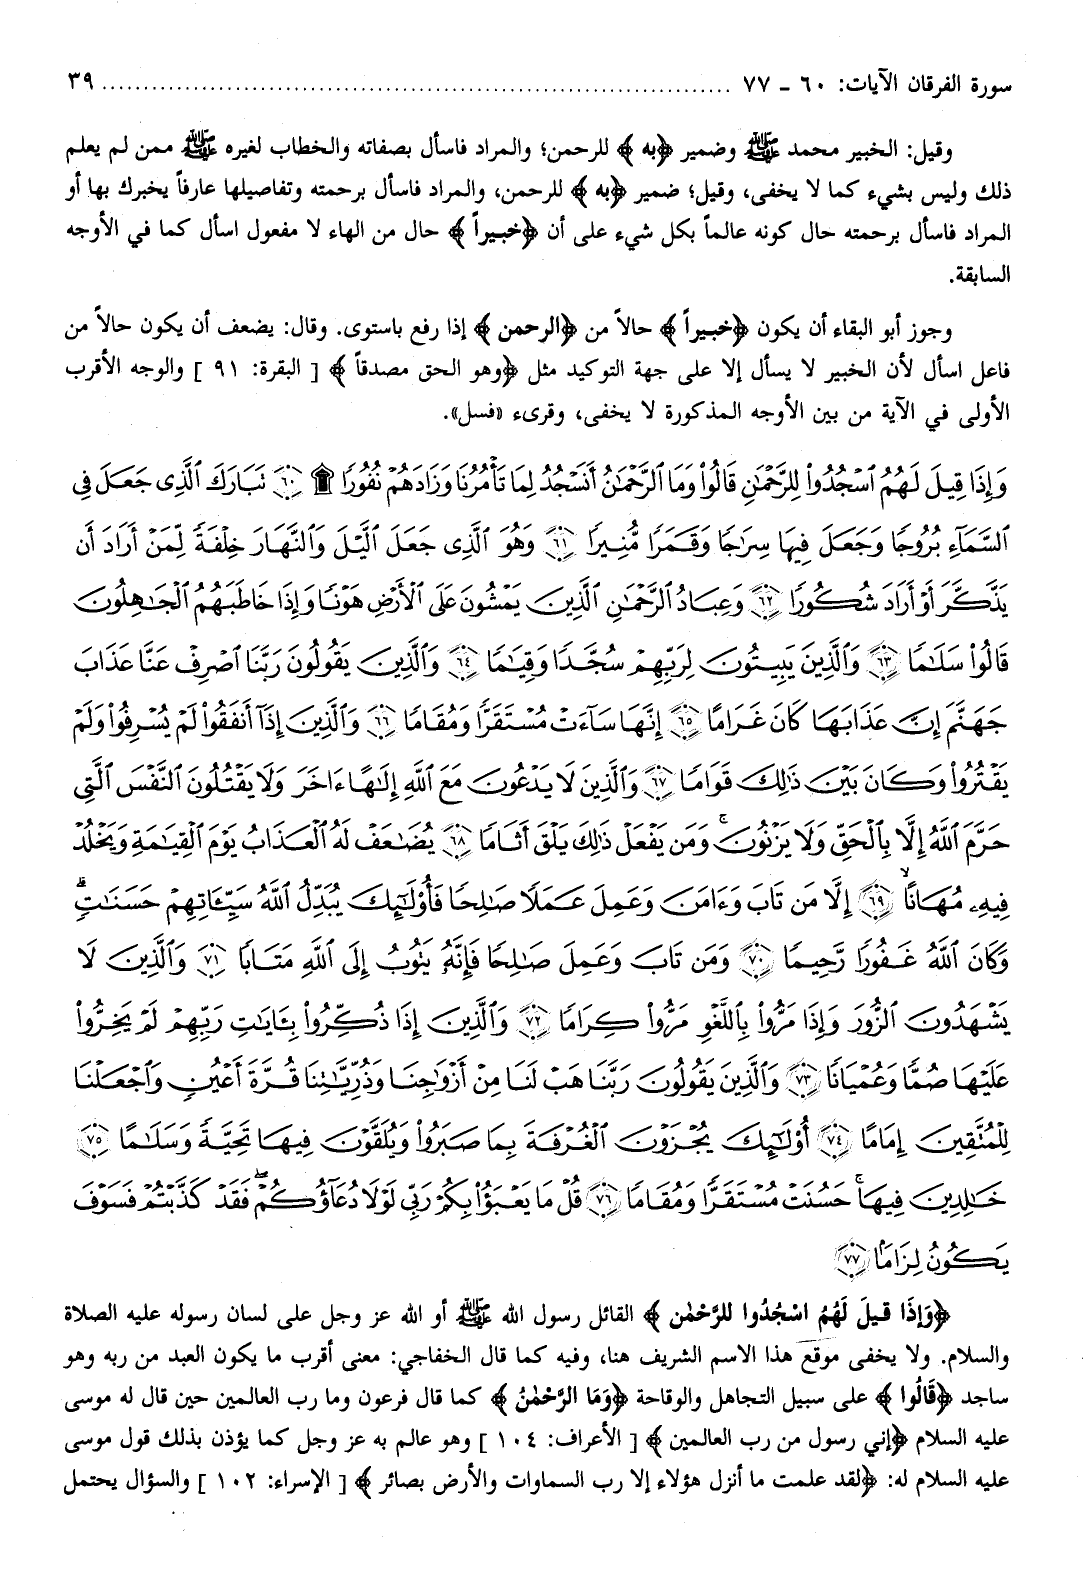 سورة الفرقان الآيات: ٦٠ - ٧٧ ........................................................................... ٣٩
وقيل: الخبير محمد ﷺ وضمير ﴿به﴾ للرحمن؛ والمراد فاسأل بصفاته والخطاب لغيره ﷺ ممن لم يعلم
ذلك وليس بشيء كما لا يخفى، وقيل؛ ضمير ﴿به﴾ للرحمن، والمراد فاسأل برحمته وتفاصيلها عارفاً يخبرك بها أو
المراد فاسأل برحمته حال كونه عالماً بكل شيء على أن ﴿خبيراً﴾ حال من الهاء لا مفعول اسأل كما في الأوجه
السابقة.
وجوز أبو البقاء أن يكون ﴿خبيراً﴾ حالاً من ﴿الرحمن﴾ إذا رفع باستوى. وقال: يضعف أن يكون حالاً من
فاعل اسأل لأن الخبير لا يسأل إلا على جهة التوكيد مثل ﴿وهو الحق مصدقاً﴾ [ البقرة: ٩١ ] والوجه الأقرب
الأولى في الآية من بين الأوجه المذكورة لا يخفى، وقرىء «فسل».
وَإِذَا قِيلَ لَهُمُ ٱسْجُدُوا۟ لِلرَّحْمَٰنِ قَالُوا۟ وَمَا ٱلرَّحْمَٰنُ أَنَسْجُدُ لِمَا تَأْمُرُنَا وَزَادَهُمْ نُفُورًا ۩ ٦٠ تَبَارَكَ ٱلَّذِى جَعَلَ فِى
ٱلسَّمَآءِ بُرُوجًا وَجَعَلَ فِيهَا سِرَٰجًا وَقَمَرًا مُّنِيرًا ٦١ وَهُوَ ٱلَّذِى جَعَلَ ٱلَّيْلَ وَٱلنَّهَارَ خِلْفَةً لِّمَنْ أَرَادَ أَن
يَذَّكَّرَ أَوْ أَرَادَ شُكُورًا ٦٢ وَعِبَادُ ٱلرَّحْمَٰنِ ٱلَّذِينَ يَمْشُونَ عَلَى ٱلْأَرْضِ هَوْنًا وَإِذَا خَاطَبَهُمُ ٱلْجَٰهِلُونَ
قَالُوا۟ سَلَٰمًا ٦٣ وَٱلَّذِينَ يَبِيتُونَ لِرَبِّهِمْ سُجَّدًا وَقِيَٰمًا ٦٤ وَٱلَّذِينَ يَقُولُونَ رَبَّنَا ٱصْرِفْ عَنَّا عَذَابَ
جَهَنَّمَ إِنَّ عَذَابَهَا كَانَ غَرَامًا ٦٥ إِنَّهَا سَآءَتْ مُسْتَقَرًّا وَمُقَامًا ٦٦ وَٱلَّذِينَ إِذَآ أَنفَقُوا۟ لَمْ يُسْرِفُوا۟ وَلَمْ
يَقْتُرُوا۟ وَكَانَ بَيْنَ ذَٰلِكَ قَوَامًا ٦٧ وَٱلَّذِينَ لَا يَدْعُونَ مَعَ ٱللَّهِ إِلَٰهًا ءَاخَرَ وَلَا يَقْتُلُونَ ٱلنَّفْسَ ٱلَّتِى
حَرَّمَ ٱللَّهُ إِلَّا بِٱلْحَقِّ وَلَا يَزْنُونَ ۚ وَمَن يَفْعَلْ ذَٰلِكَ يَلْقَ أَثَامًا ٦٨ يُضَٰعَفْ لَهُ ٱلْعَذَابُ يَوْمَ ٱلْقِيَٰمَةِ وَيَخْلُدْ
فِيهِۦ مُهَانًا ۙ ٦٩ إِلَّا مَن تَابَ وَءَامَنَ وَعَمِلَ عَمَلًا صَٰلِحًا فَأُو۟لَٰٓئِكَ يُبَدِّلُ ٱللَّهُ سَيِّـَٔاتِهِمْ حَسَنَٰتٍ ۗ
وَكَانَ ٱللَّهُ غَفُورًا رَّحِيمًا ٧٠ وَمَن تَابَ وَعَمِلَ صَٰلِحًا فَإِنَّهُۥ يَتُوبُ إِلَى ٱللَّهِ مَتَابًا ٧١ وَٱلَّذِينَ لَا
يَشْهَدُونَ ٱلزُّورَ وَإِذَا مَرُّوا۟ بِٱللَّغْوِ مَرُّوا۟ كِرَامًا ٧٢ وَٱلَّذِينَ إِذَا ذُكِّرُوا۟ بِـَٔايَٰتِ رَبِّهِمْ لَمْ يَخِرُّوا۟
عَلَيْهَا صُمًّا وَعُمْيَانًا ٧٣ وَٱلَّذِينَ يَقُولُونَ رَبَّنَا هَبْ لَنَا مِنْ أَزْوَٰجِنَا وَذُرِّيَّٰتِنَا قُرَّةَ أَعْيُنٍ وَٱجْعَلْنَا
لِلْمُتَّقِينَ إِمَامًا ٧٤ أُو۟لَٰٓئِكَ يُجْزَوْنَ ٱلْغُرْفَةَ بِمَا صَبَرُوا۟ وَيُلَقَّوْنَ فِيهَا تَحِيَّةً وَسَلَٰمًا ٧٥
خَٰلِدِينَ فِيهَا ۚ حَسُنَتْ مُسْتَقَرًّا وَمُقَامًا ٧٦ قُلْ مَا يَعْبَؤُا۟ بِكُمْ رَبِّى لَوْلَا دُعَآؤُكُمْ ۖ فَقَدْ كَذَّبْتُمْ فَسَوْفَ
يَكُونُ لِزَامًا ٧٧
﴿وَإِذَا قيلَ لَهُمُ اسْجُدُوا للرَّحْمٰن﴾ القائل رسول الله ﷺ أو الله عز وجل على لسان رسوله عليه الصلاة
والسلام. ولا يخفى موقع هذا الاسم الشريف هنا، وفيه كما قال الخفاجي: معنى أقرب ما يكون العبد من ربه وهو
ساجد ﴿قَالُوا﴾ على سبيل التجاهل والوقاحة ﴿وَمَا الرَّحْمٰنُ﴾ كما قال فرعون وما رب العالمين حين قال له موسى
عليه السلام ﴿إني رسول من رب العالمين﴾ [ الأعراف: ١٠٤ ] وهو عالم به عز وجل كما يؤذن بذلك قول موسى
عليه السلام له: ﴿لقد علمت ما أنزل هؤلاء إلا رب السماوات والأرض بصائر﴾ [ الإسراء: ١٠٢ ] والسؤال يحتمل